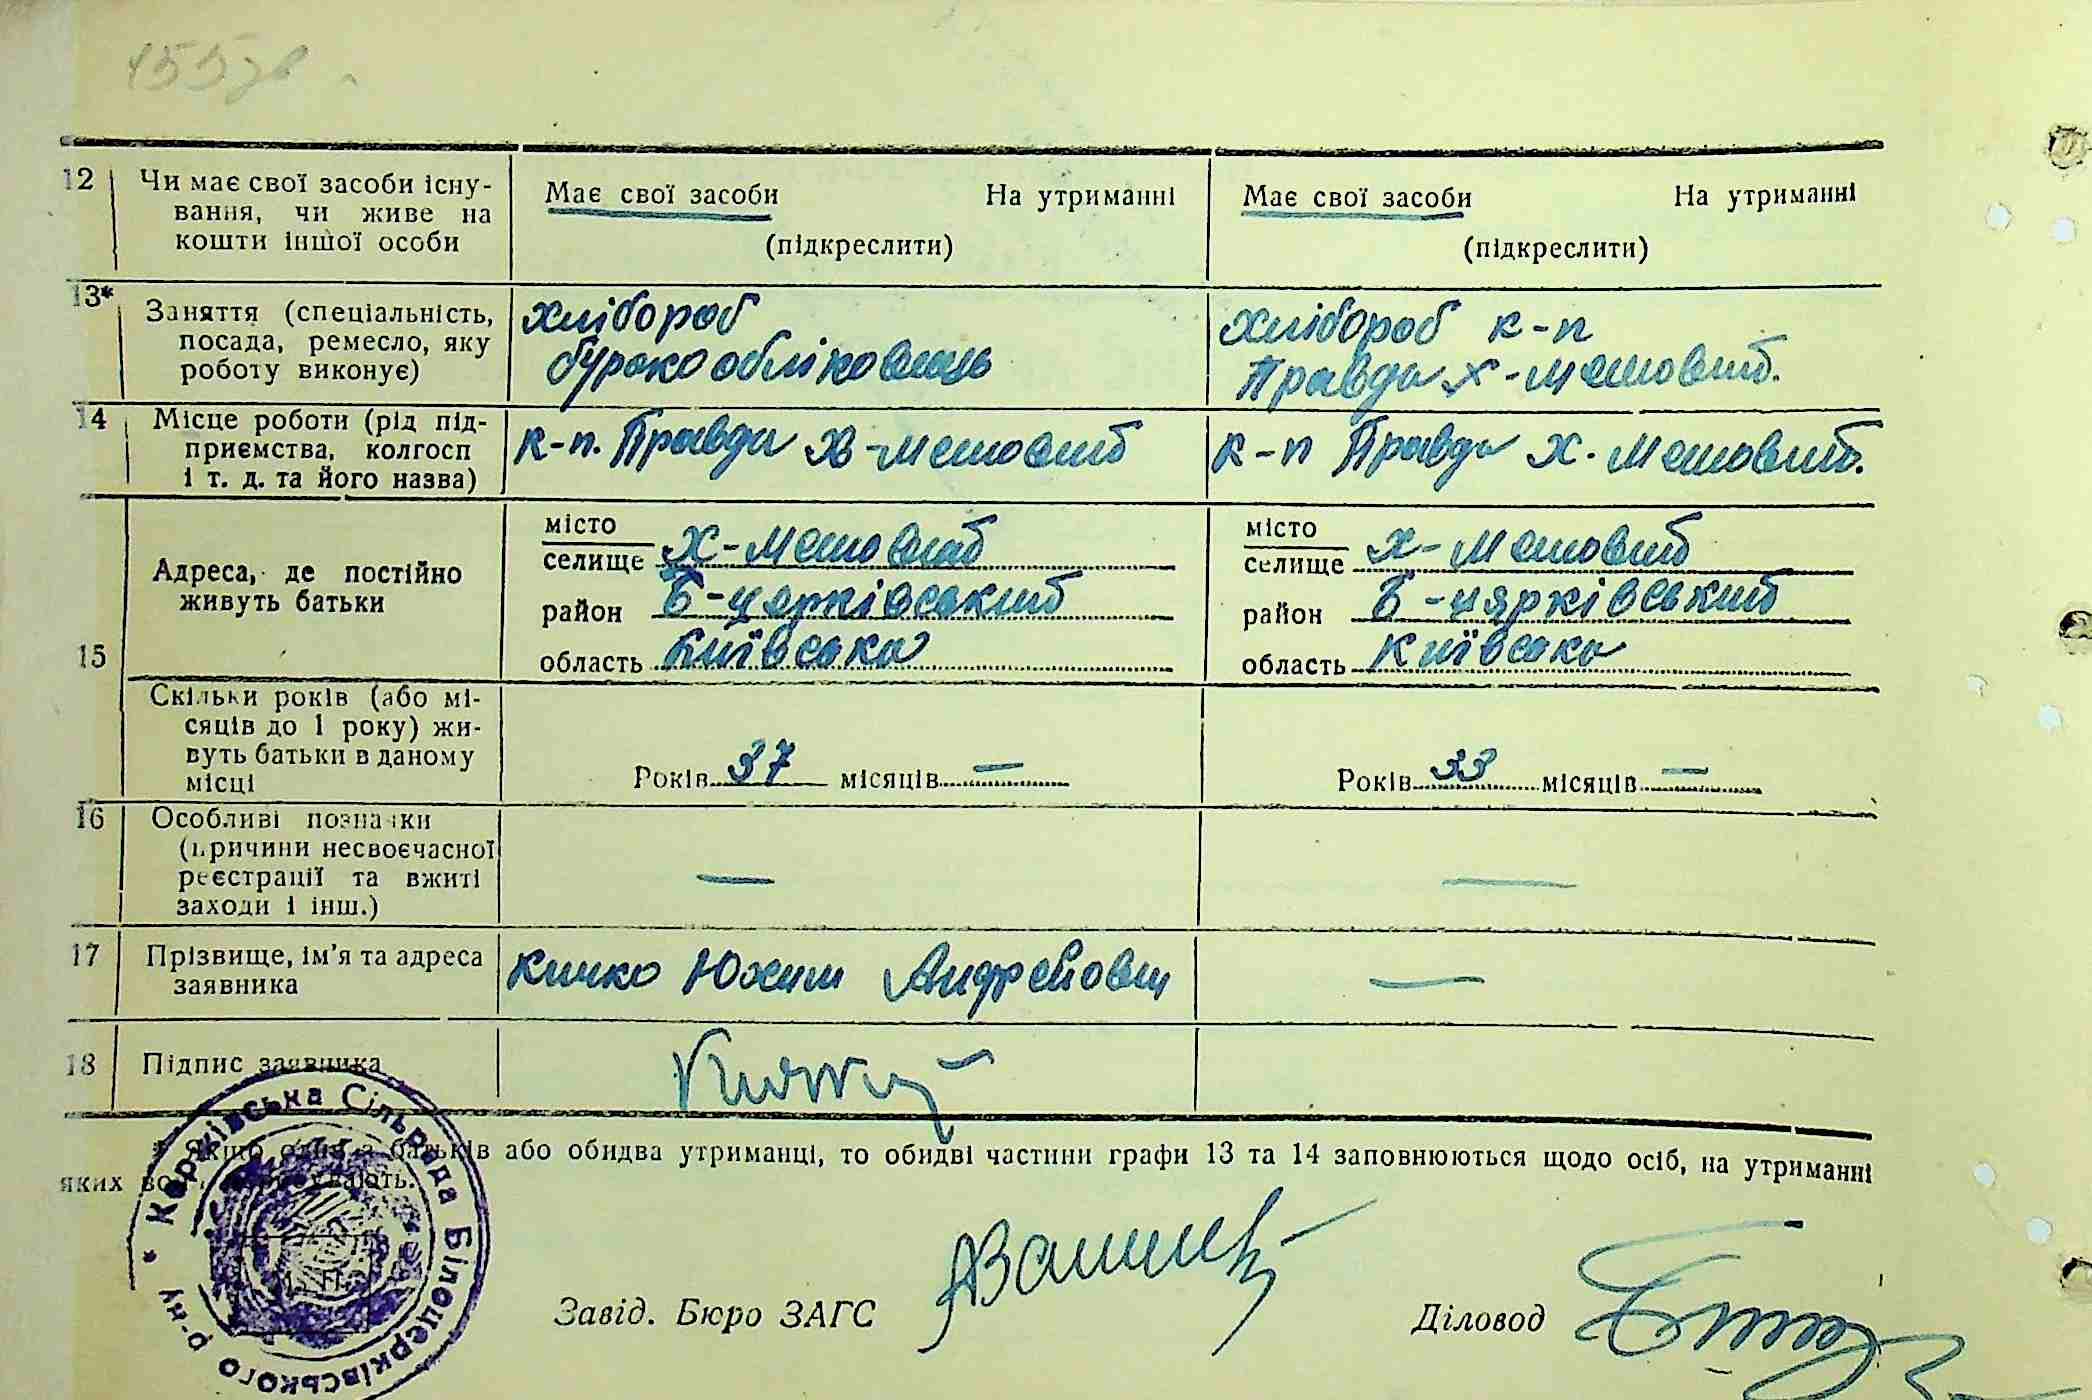 155зв
12 Чи має свої засоби існу-
вання, чи живе на
кошти іншої особи
Має свої засоби На утриманні
(підкреслити)
Має свої засоби На утриманні
(підкреслити)
13* Заняття (спеціальність,
посада, ремесло, яку
роботу виконує)
хлібороб
буракообліковець
хлібороб к-п
Правда х-Мешовий.
14 Місце роботи (рід під-
приємства, колгосп
і т. д. та його назва)
к-п. Правда х-Мешовий
к-п Правда х. Мешовий.
15 Адреса, де постійно
живуть батьки
місто
селище х-Мешовий
район Б-церківський
область Київська
місто
селище х-Мешовий
район Б-цярківський
область Київська
Скільки років (або мі-
сяців до 1 року) жи-
вуть батьки в даному
місці
Років 37 місяців —
Років 33 місяців —
16 Особливі позначки
(причини несвоєчасної
реєстрації та вжиті
заходи і інш.)
—
—
17 Прізвище, ім'я та адреса
заявника
Кичко Юхим Андрейович
—
18 Підпис заявника
* Якщо один з батьків або обидва утриманці, то обидві частини графи 13 та 14 заповнюються щодо осіб, на утриманні
яких вони перебувають.
Сільрада Білоцерківського р-ну *
Завід. Бюро ЗАГС
Діловод